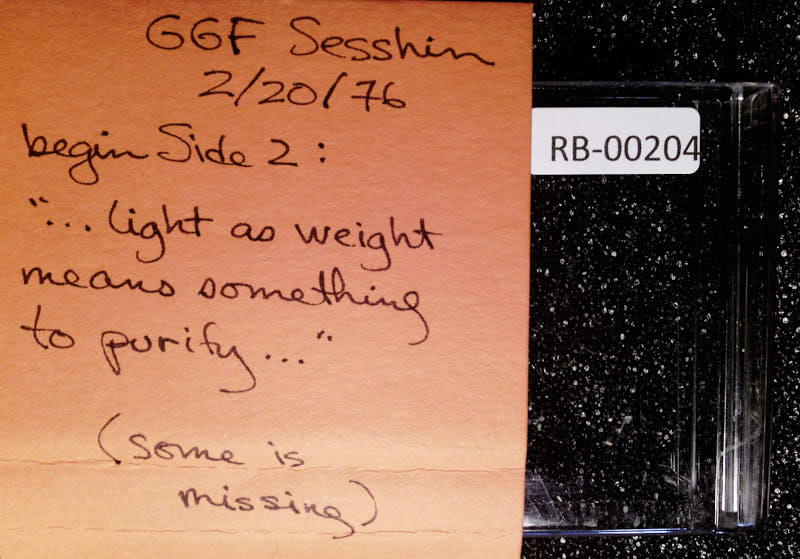 GGF Sesshin
2/20/76
begin Side 2 :
"... light as weight
means something
to purify ..."
(some is
missing)
RB-00204